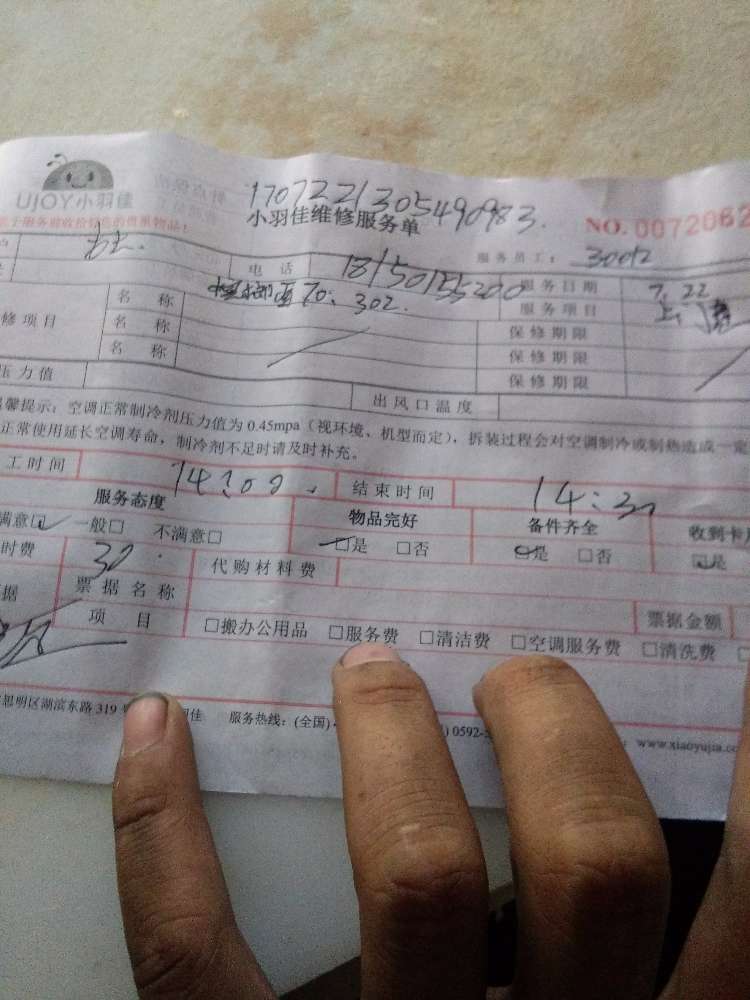 UJOY小羽佳
1707221305490983.
小羽佳维修服务单
NO. 0072062
服务员工： 30012
电 话 18150155200 服务日期 7, 22
名 称 70: 302. 服务项目
修项目 名 称 保修期限
名 称 保修期限
保修期限
压力值 出风口温度
馨提示：空调正常制冷剂压力值为 0.45mpa（视环境、机型而定），拆装过程会对空调制冷或制热造成一定
正常使用延长空调寿命，制冷剂不足时请及时补充。
工时间 14:00 结束时间 14:30
服务态度 物品完好 备件齐全 收到卡
满意☑ 一般□ 不满意□ ☑是 □否 ☑是 □否 ☑是
时费 30. 代购材料费
据 票据名称 票据金额
项 目 □搬办公用品 □服务费 □清洁费 □空调服务费 □清洗费
思明区湖滨东路 319 佳 服务热线：(全国) 0592- www.xiaoyujia.co